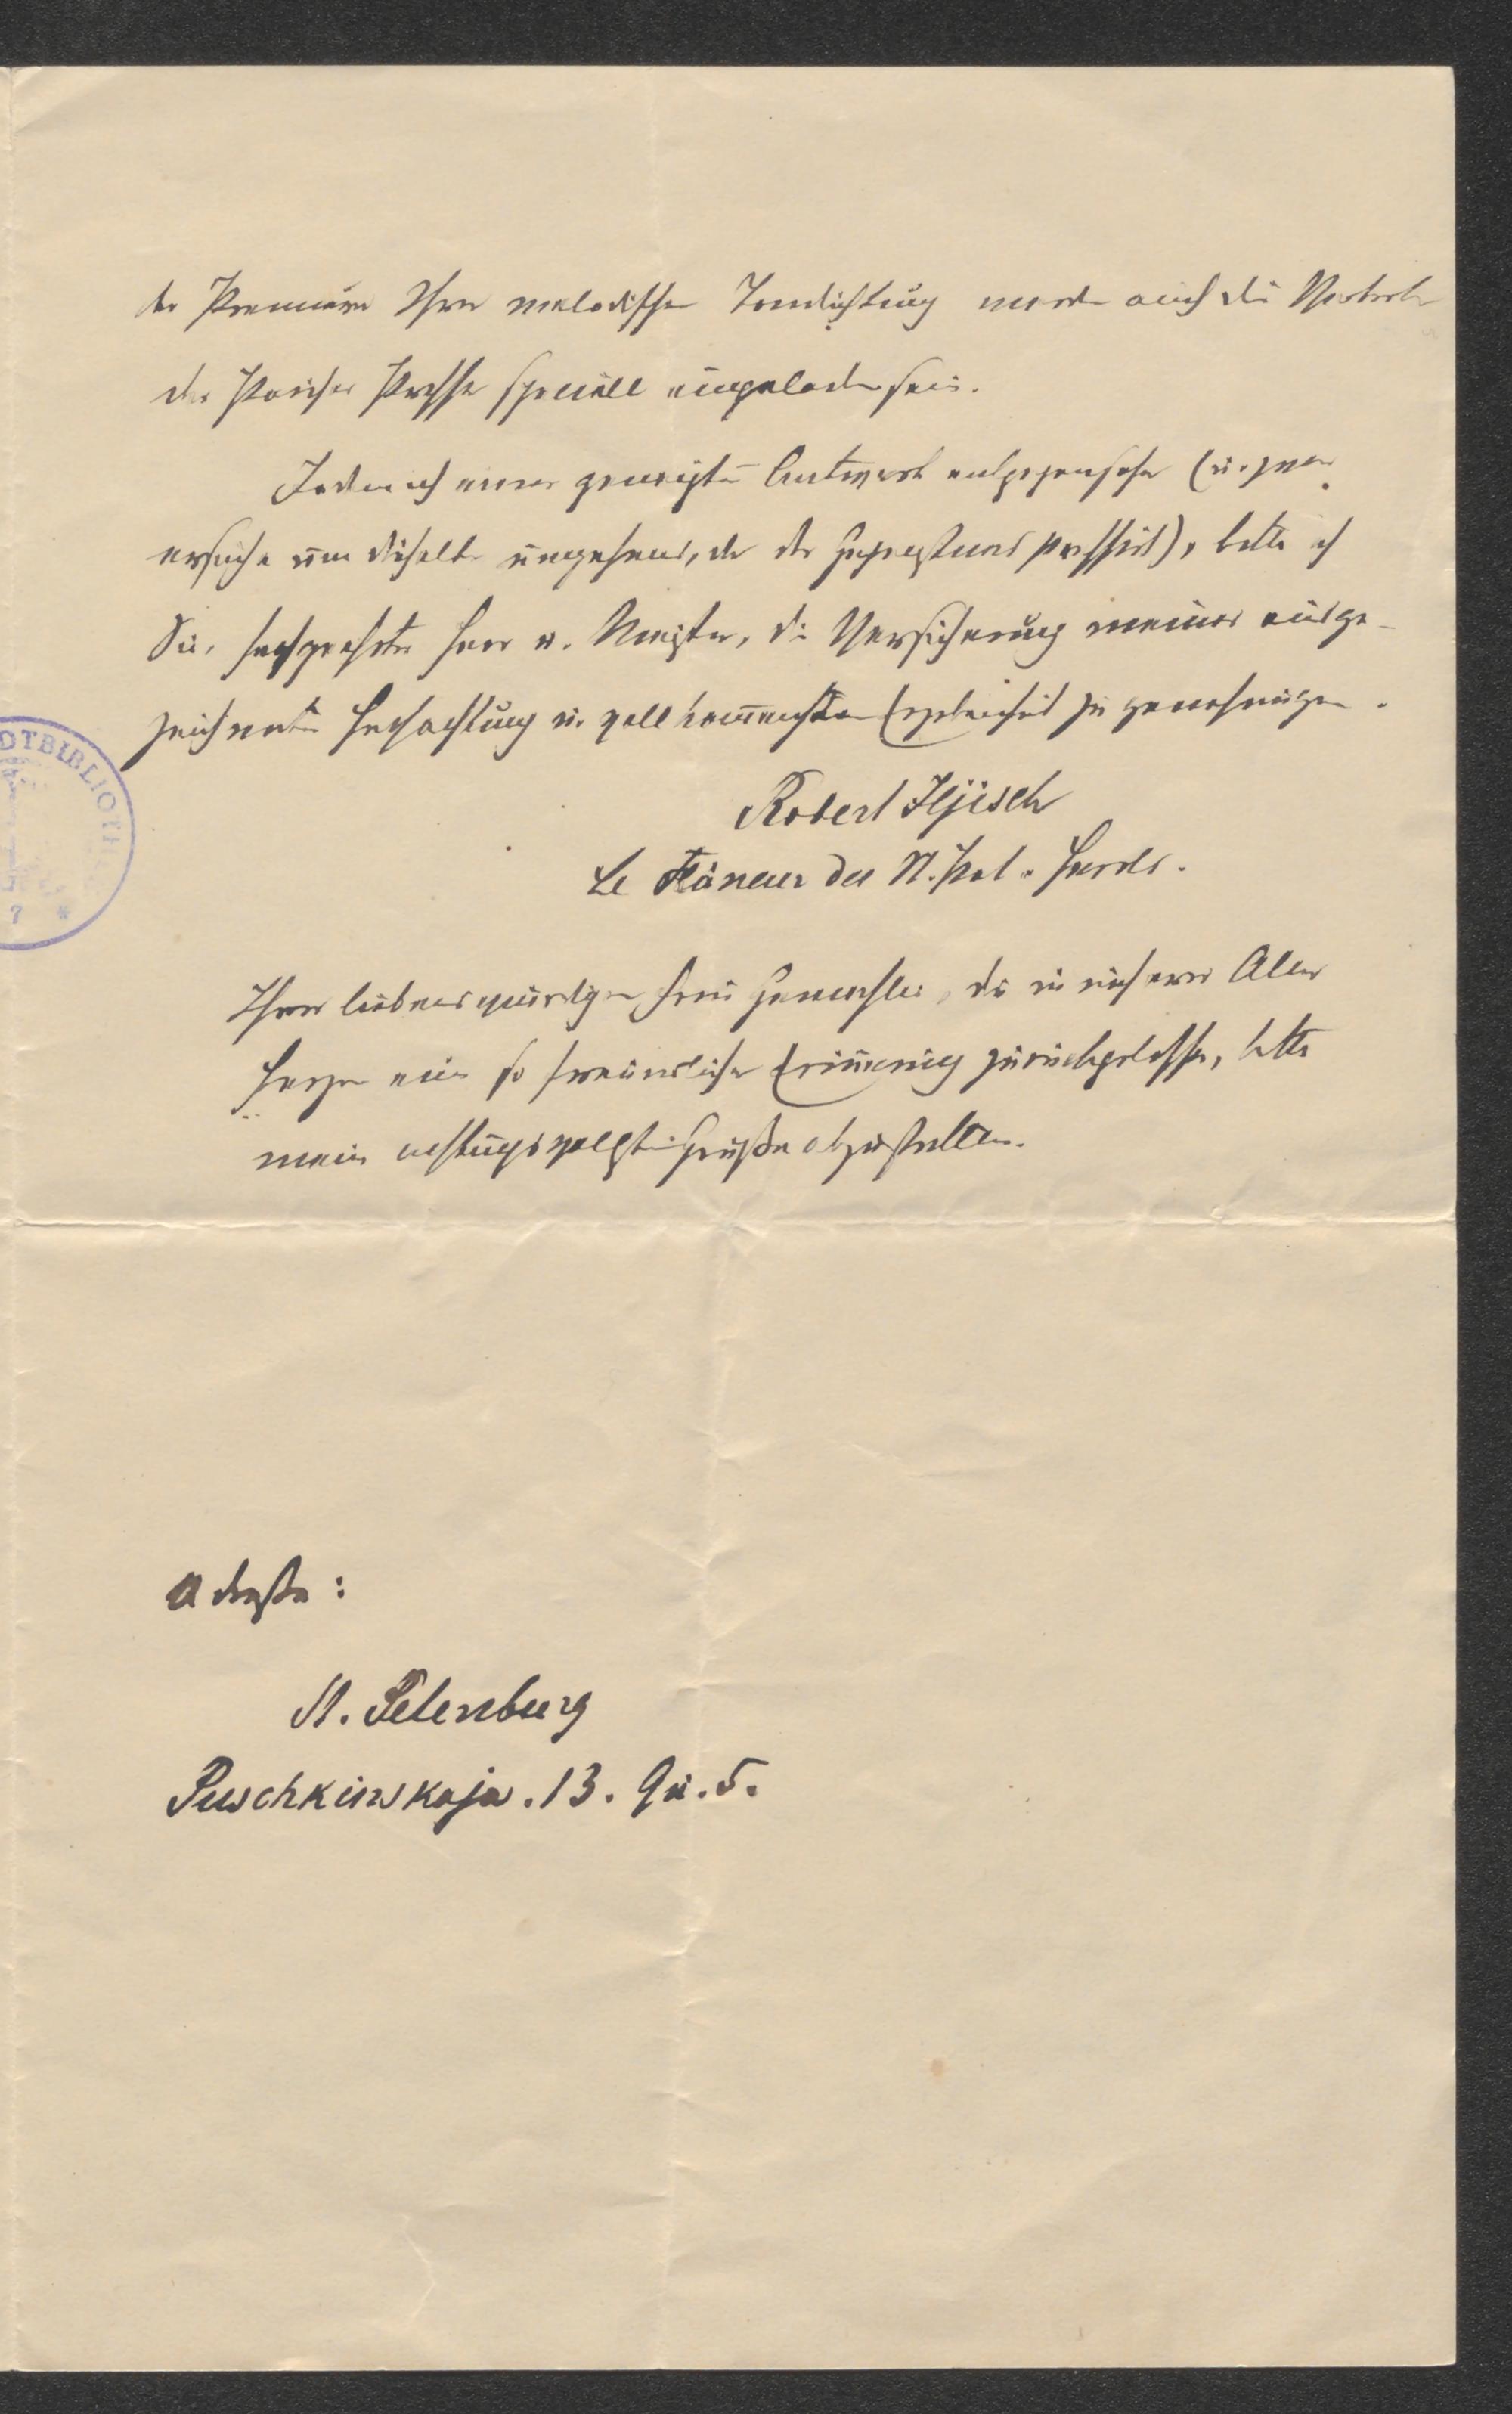 der Premiere Ihrer melodischen Tondichtung werden auch die Vertreter
der Pariser Presse speciell eingeladen sein.
Indem ich einer geneigten Antwort entgegensehe (u. zwar
ersuche um dieselbe umgehend, da der pressirt), bitte ich
Sie, hochgeehrter Herr u. Meister, die Versicherung meiner ausge-
zeichneten Hochachtung u. vollkommensten Ergebenheit zu genehmigen.
Robert Iljisch
Le Flâneur des St. Pet. Herold.
Ihrer liebenswürdigen Frau Gemahlin, die in unser Aller
Herzen eine so freundliche Erinnerung zurückgelassen, bitte
meine achtungsvollsten Grüße abzustatten.
Adresse:
St. Petersburg
Puschkinskaja. 13. Qu. 5.